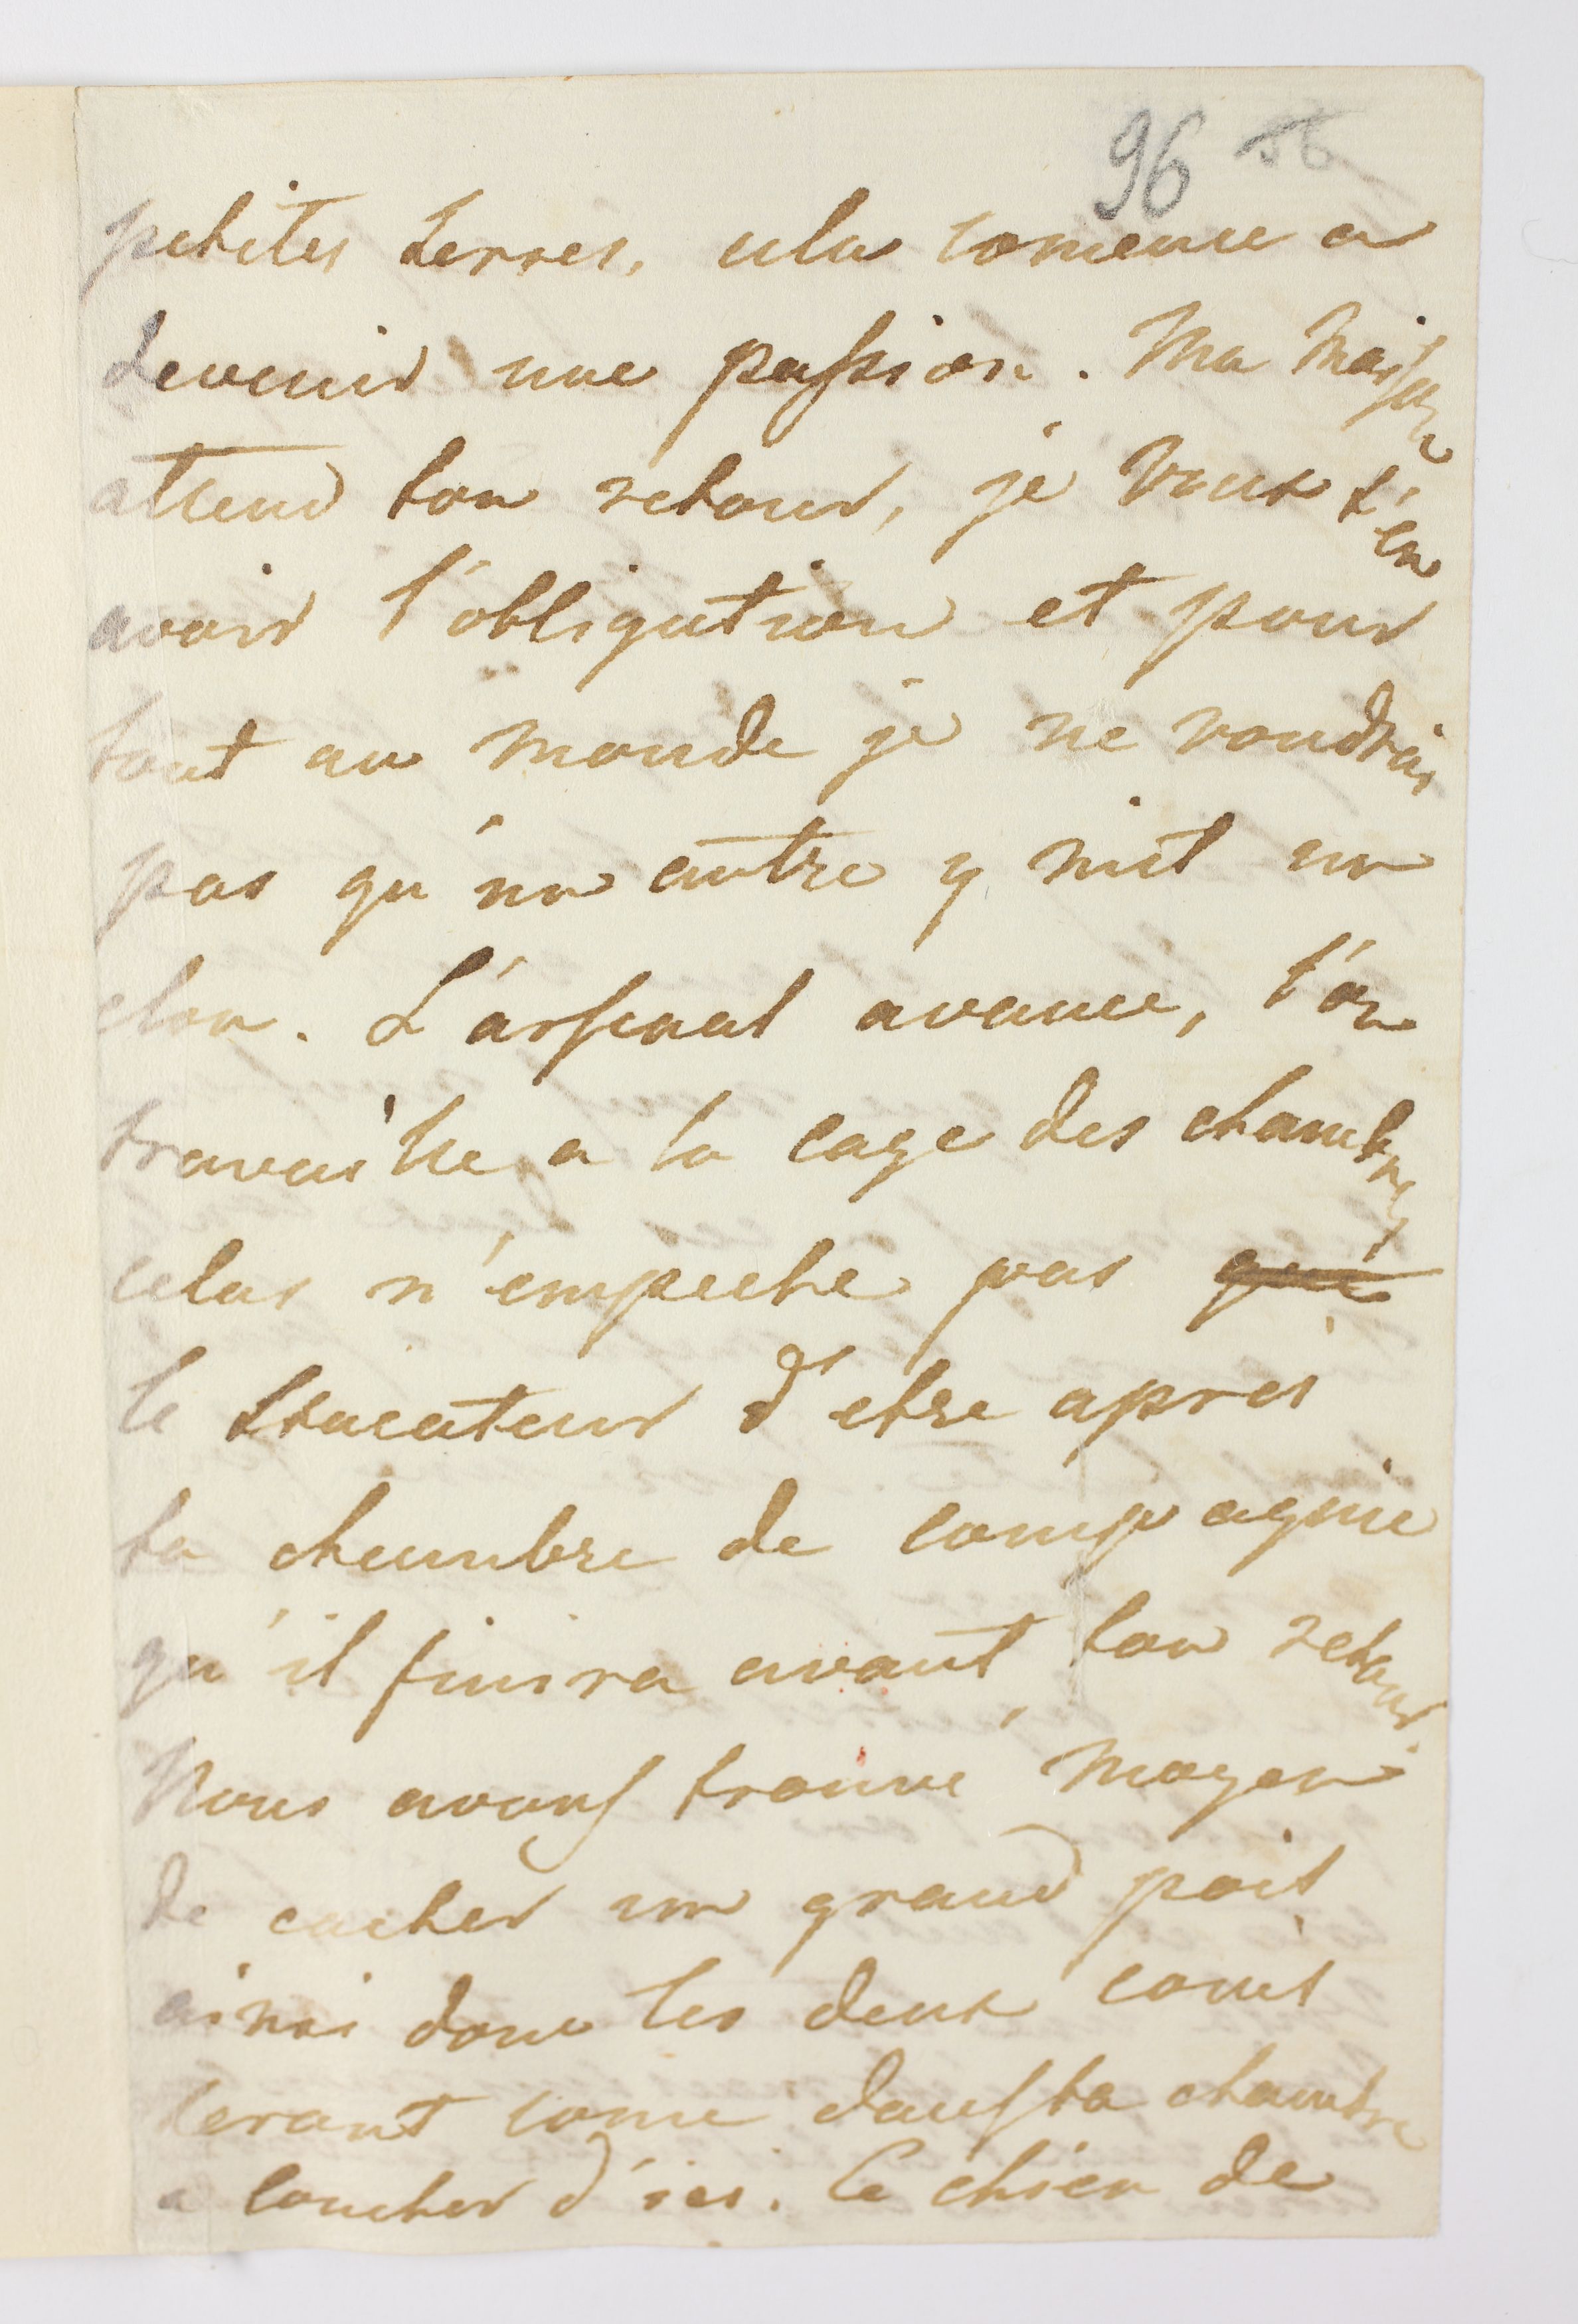 96 56
petites terres, cela comence a
devenir une passion. Ma Maison
attend ton retour, je veux t'en
avoir l'obligation et pour
tout au monde je ne voudrais
pas qu'un autre y mit un
clou. L'arsenal avance, l'on
travaille a la cage des chambres
celas n'empeche pas que
le stucateur d'etre apres
ta chambre de compagnie
qu'il finira avant ton retour.
Nous avons trouvé moyen
de cacher un grand poil
ainsi donc les deux coins
seront come dans ta chambre
a coucher d'ici. Le chien de